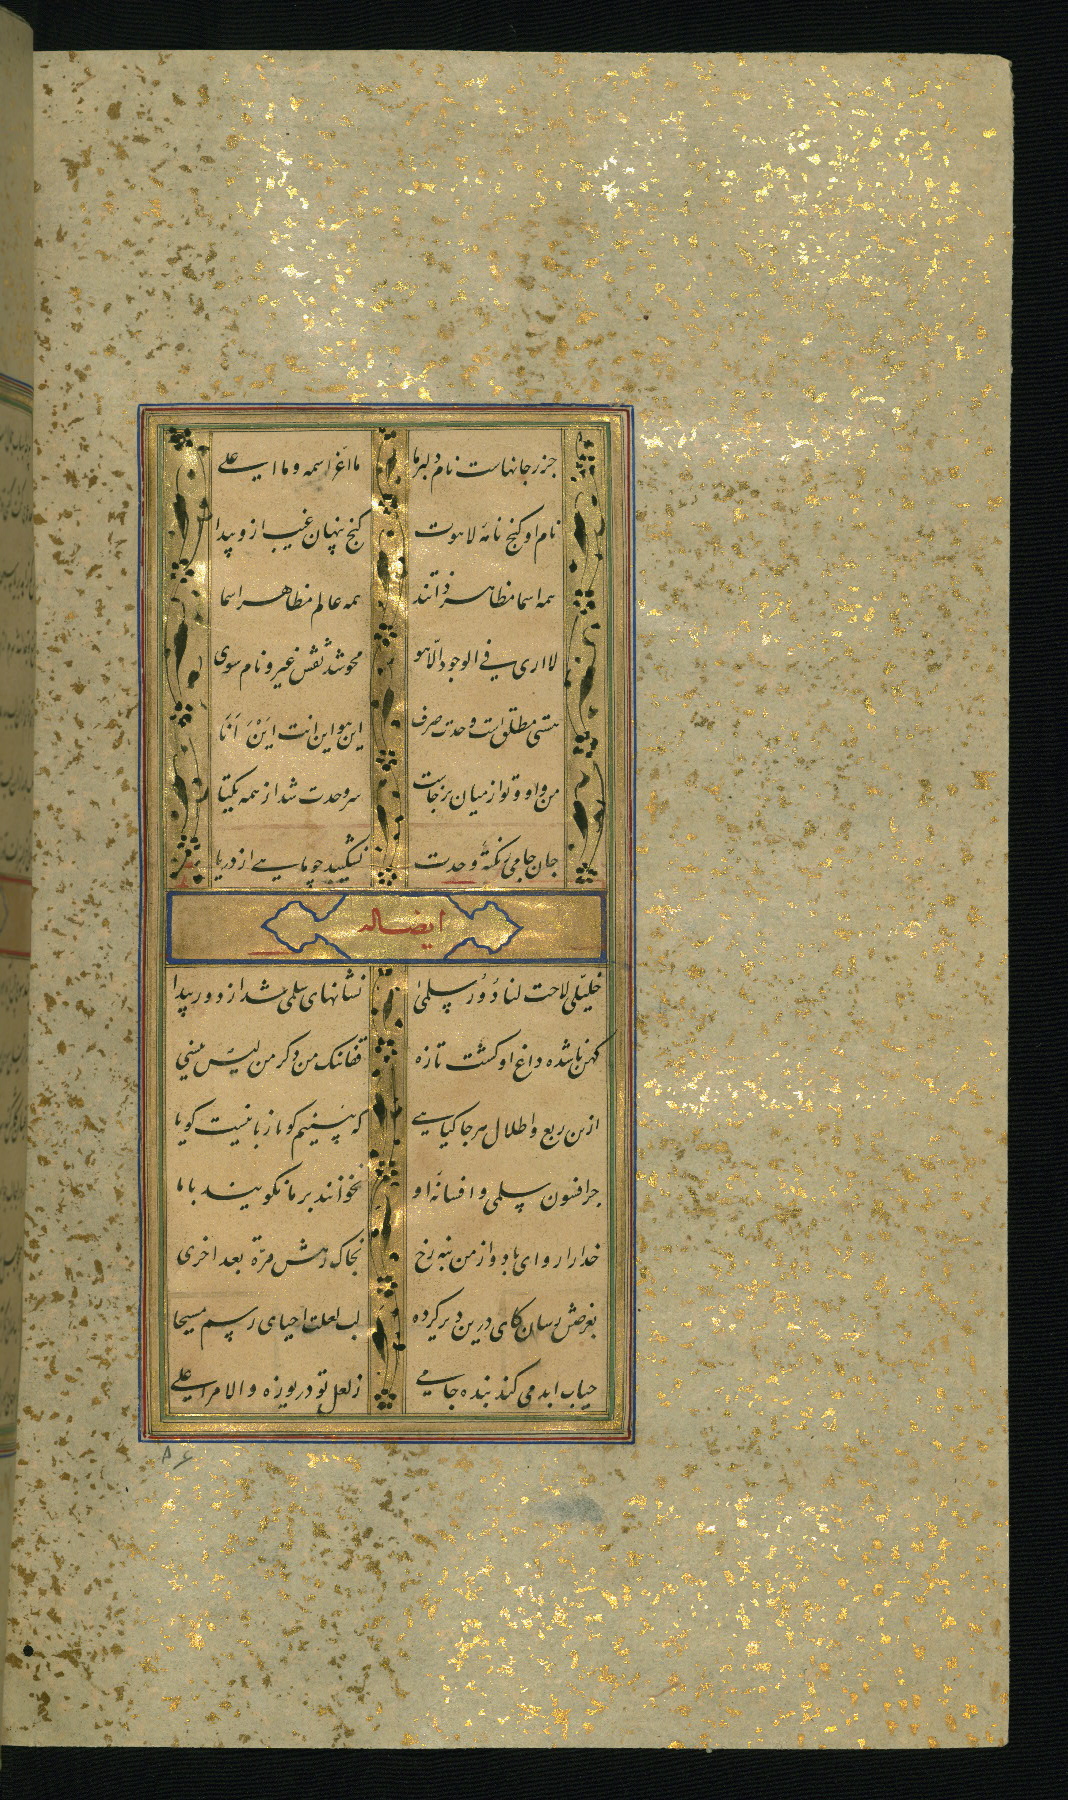 حرز جانهاست نام دلبر ما ما اعز اسمه و ما اعلی
نام او گنج نامهٔ لاهوت گنج پنهان غیب ازو پیدا
همه اسما مظاهر ذاتند همه عالم مظاهر اسما
لا اری فی الوجود الا هو محو شد نقش غیر و نام سوی
هستی مطلق است وحدت صرف این هو این انت این انا
من و او و تو از میان برخاست سر وحدت شد از همه یکتا
جان جامی ز نکتهٔ وحدت نشکیبد چو ماهی از دریا
ایضا له
خلیلی لاحت لنا دور سلمی نشانهای سلمی شد از دور پیدا
کهن باشده داغ او گشت تازه قفانبک من ذکر من لیس ینسی
ازین ربع و اطلال هر جا گیاهی که بینیم گویا زبانیست گویا
جز افسون سلمی و افسانهٔ او نخوانند بر ما نگویند با ما
خدا را رو ای باد و از من بنه رخ بخاک رهش مرة بعد اخری
بعرضش رسان کای درین دیر کرده لب لعلت احیای رسم مسیحا
حیات ابد می کند بنده جامی ز لعل تو دریوزه والامر اعلی
۸۶